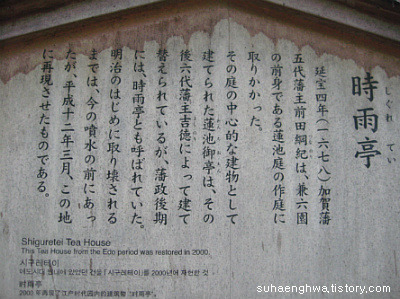 時雨亭
しぐれ てい
延宝四年(一六七八)加賀藩
五代藩主前田綱紀は、兼六園
の前身である蓮池庭の作庭に
取りかかった。
その庭の中心的な建物として
建てられた蓮池御亭は、その
後六代藩主吉徳によって建て
替えられているが、藩政後期
には、時雨亭とも呼ばれていた。
明治のはじめに取り壊される
までは、今の噴水の前にあっ
たが、平成十二年三月、この地
に再現させたものである。
Shiguretei Tea House
This Tea House from the Edo period was restored in 2000.
시구레테이
에도시대 있었던 건물 「시구레테이」를 2000년에 재현한 것
时雨亭
2000年再现了江户时代园内的建筑物"时雨亭"。
suhaenghwa.tistory.com